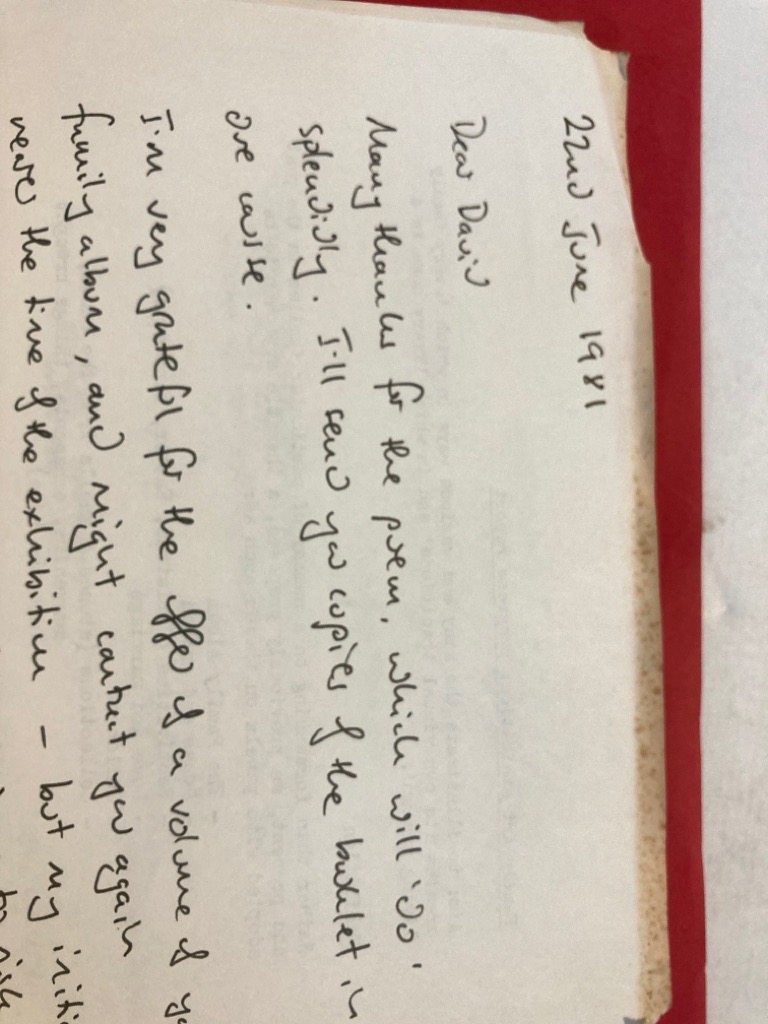 22nd June 1981
Dear David
Many thanks for the poem, which will 'do'
splendidly. I'll send you copies of the booklet in
due course.
I'm very grateful for the offer of a volume of
family album, and might contact you again
nearer the time of the exhibition – but my